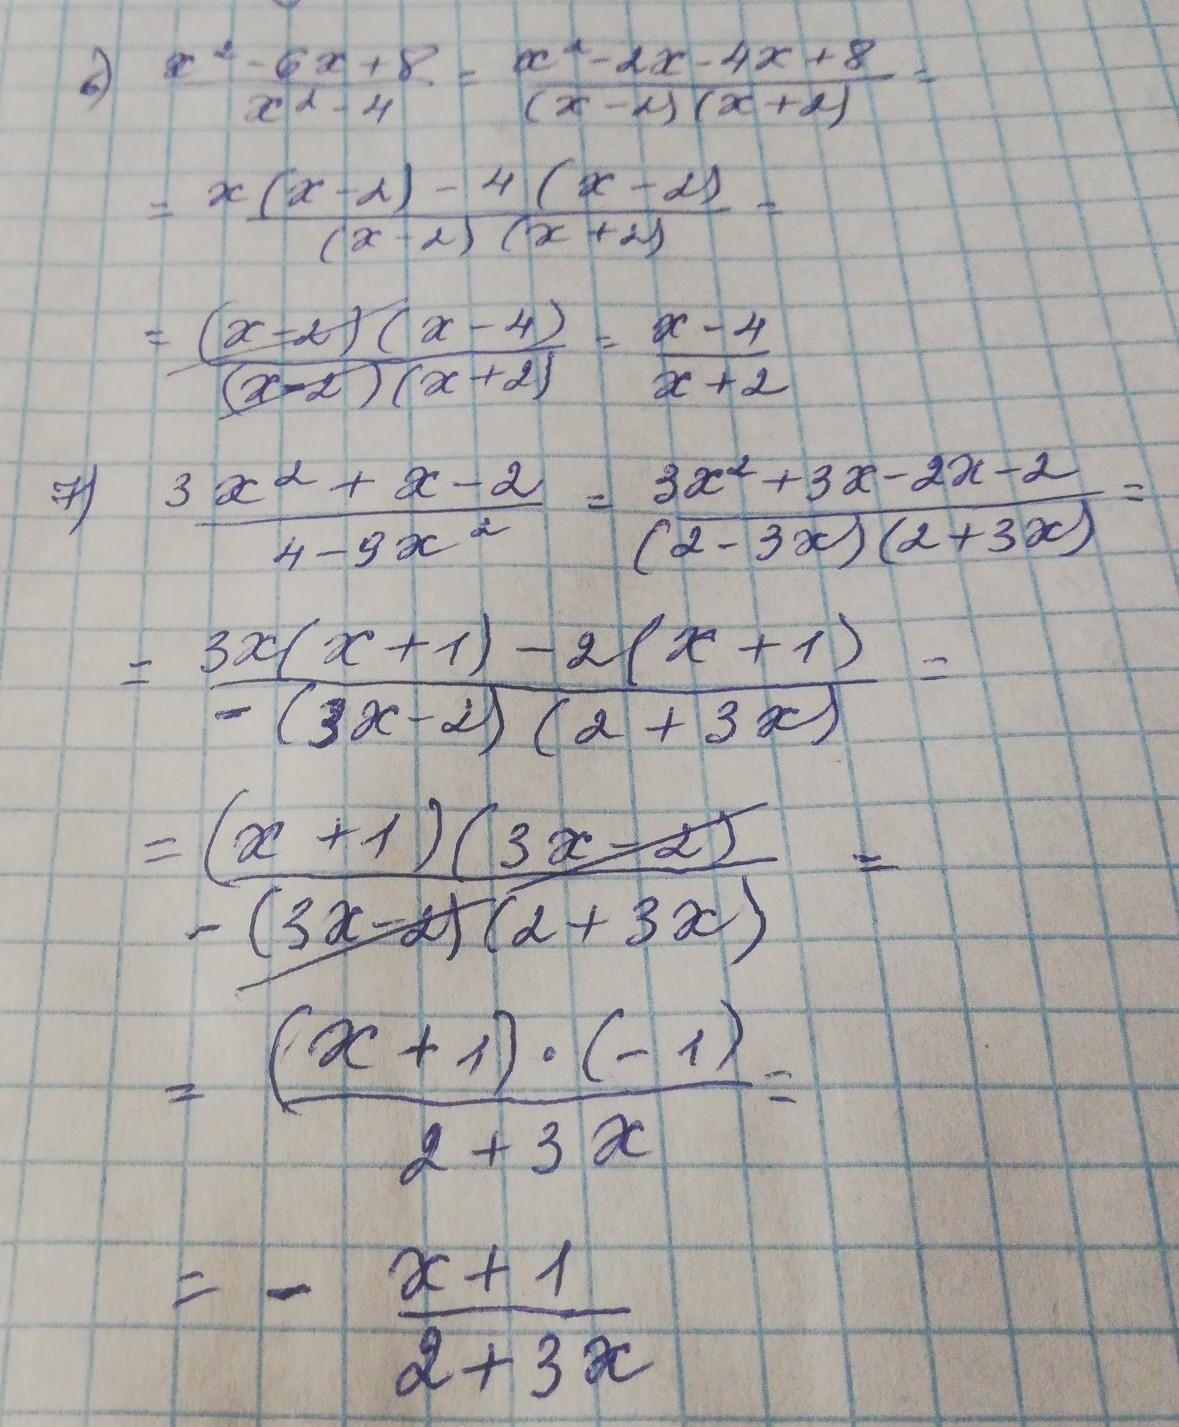 6) (x² - 6x + 8)/(x² - 4) = (x² - 2x - 4x + 8)/((x - 2)(x + 2)) =
= (x(x - 2) - 4(x - 2))/((x - 2)(x + 2)) =
= ((x - 2)(x - 4))/((x - 2)(x + 2)) = (x - 4)/(x + 2)
7) (3x² + x - 2)/(4 - 9x²) = (3x² + 3x - 2x - 2)/((2 - 3x)(2 + 3x)) =
= (3x(x + 1) - 2(x + 1))/(-(3x - 2)(2 + 3x)) =
= ((x + 1)(3x - 2))/(-(3x - 2)(2 + 3x)) =
= ((x + 1) · (-1))/(2 + 3x) =
= - (x + 1)/(2 + 3x)